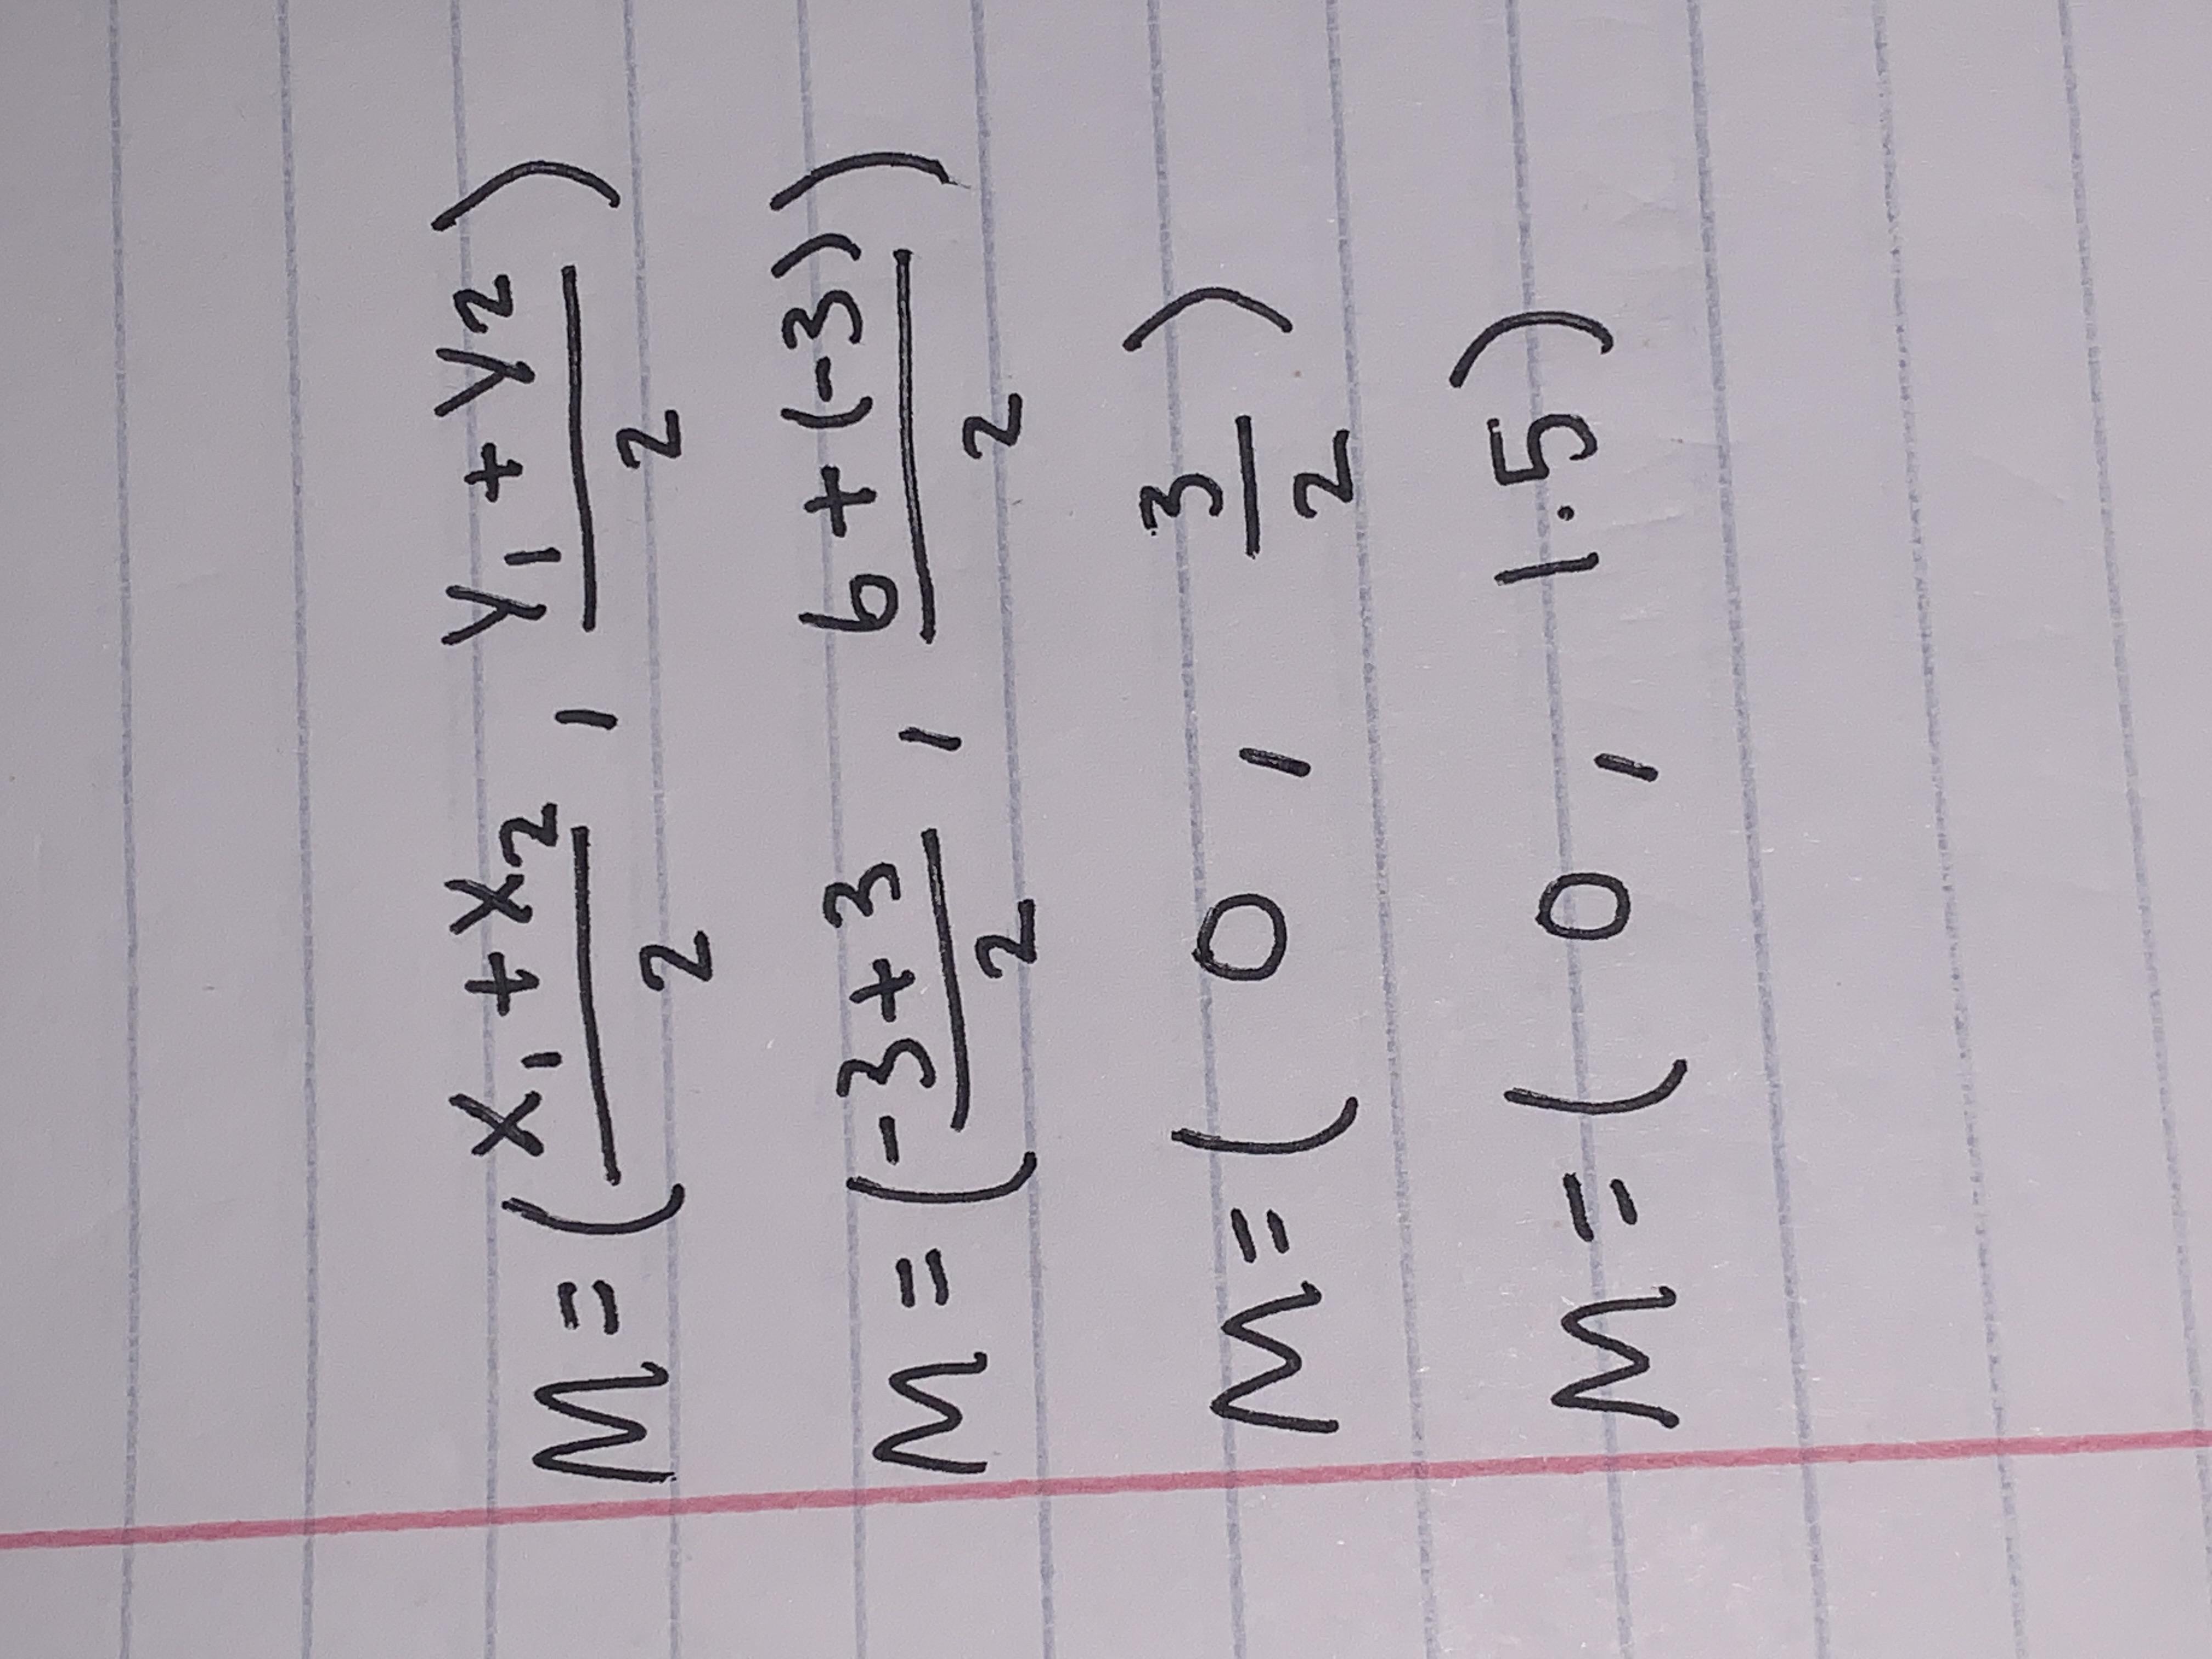 M = ( x₁ + x₂ / 2 , y₁ + y₂ / 2 )
M = ( -3 + 3 / 2 , 6 + (-3) / 2 )
M = ( 0 , 3 / 2 )
M = ( 0 , 1.5 )